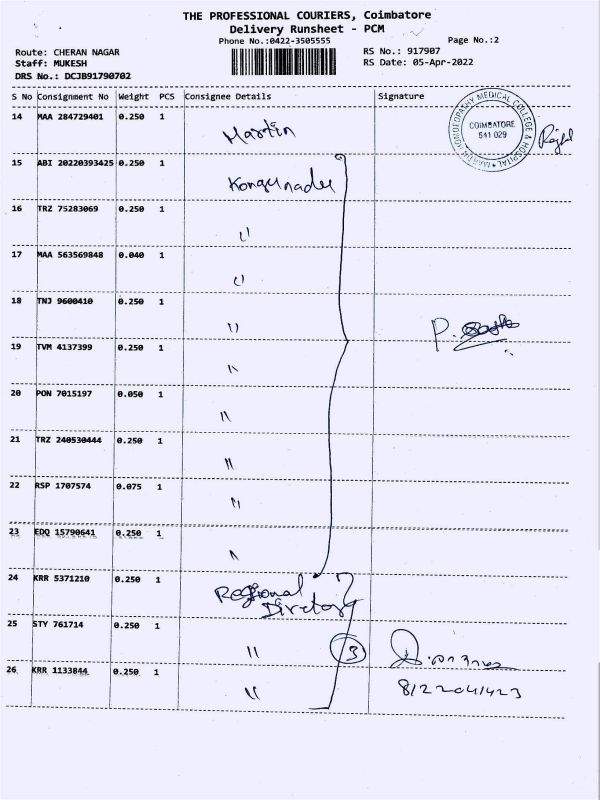 THE PROFESSIONAL COURIERS, Coimbatore
Delivery Runsheet - PCM
Phone No.:0422-3505555
Page No.:2
Route: CHERAN NAGAR
Staff: MUKESH
DRS No.: DCJB91790702
RS No.: 917907
RS Date: 05-Apr-2022
S No Consignment No Weight PCS Consignee Details Signature
14 MAA 284729401 0.250 1 Martin
MARTIN HOMOEOPATHY MEDICAL COLLEGE & HOSPITAL
COIMBATORE
641 029
15 ABI 20220393425 0.250 1 Kongunadu
16 TRZ 75283069 0.250 1 "
17 MAA 563569848 0.040 1 "
18 TNJ 9600410 0.250 1 " P.
19 TVM 4137399 0.250 1 "
20 PON 7015197 0.050 1 "
21 TRZ 240530444 0.250 1 "
22 RSP 1707574 0.075 1 "
23 EDQ 15790641 0.250 1 "
24 KRR 5371210 0.250 1 Regional
Director
25 STY 761714 0.250 1 " 3
26 KRR 1133844 0.250 1 " 8122041423